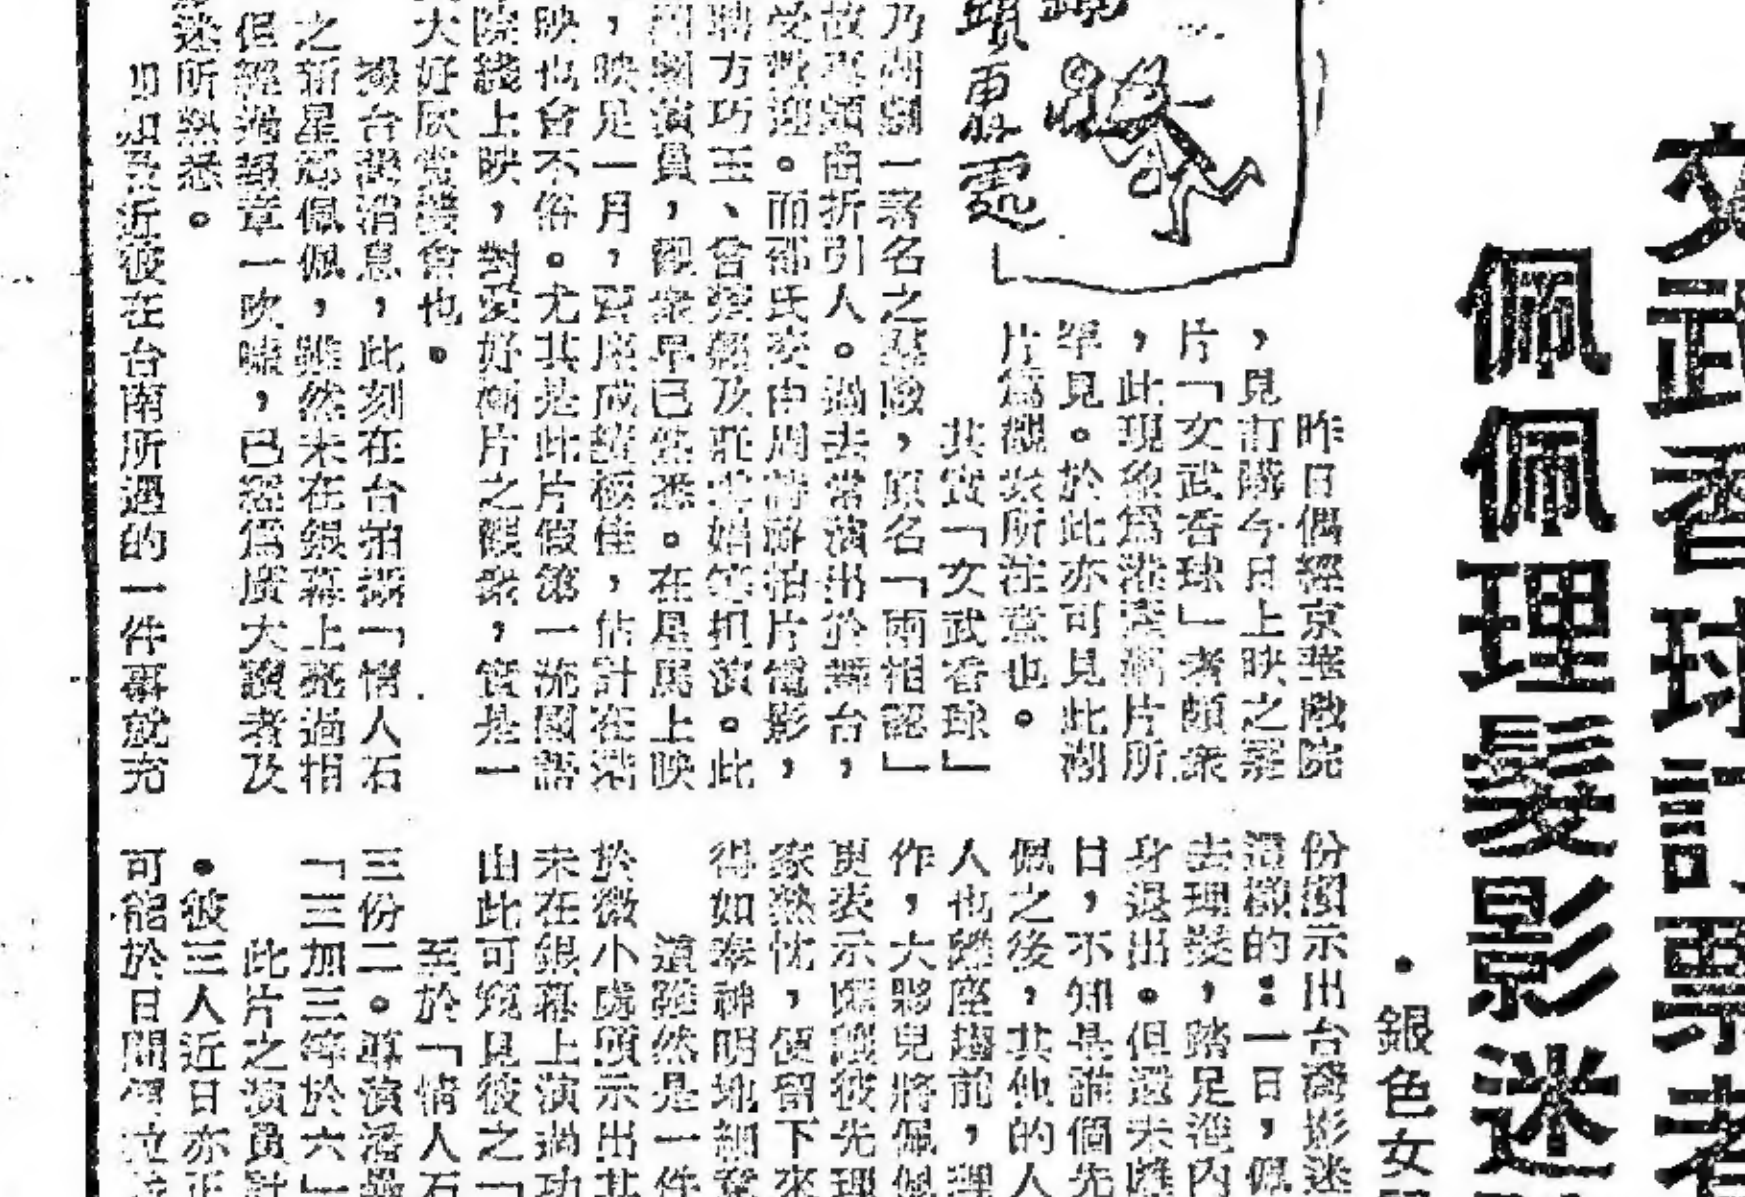 文武香球訂票者
佩佩理髮影迷
・銀色女
昨日偶經京華戲院
，見訂購今日上映之
片「文武香球」者頗衆
，此現象為港產潮片所
罕見。於此亦可見此潮
片為觀衆所注意也。
其實「文武香球」
乃潮劇一著名之，原名「兩相認」
故事頗曲折引人。過去常演出於舞台，
受歡迎。而邵氏由周詩拍片電影，
聘方巧玉、曾及莊娟等担演。此
潮劇演員，觀衆早已熟悉。在星馬上映
，映足一月，賣座成績極佳，估計在港
映也會不俗。尤其是此片假第一流國語
院綫上映，對愛好潮片之觀衆，實是一
大好欣賞機會也。
據台灣消息，此刻在台拍攝「情人石
之新星鄭佩佩，雖然未在銀幕上亮過相
但經過報章一吹噓，已深為廣大讀者及
迷所熟悉。
即如最近彼在台南所遇的一件事就充
份顯示出台灣影迷
的：一日，佩
去理髮，踏足進內
身退出。但還未離
日，不知是誰個先
佩之後，其他的人
人也離座趨前，理
作，大夥兒將佩佩
更表示應讓彼先理
家熱忱，便留下來
得如奉神明地細
這雖然是一件
於微小處顯示出其
未在銀幕上演過功
由此可窺見彼之「
至於「情人石
三份二。導演潘壘
「三加三等於六」
此片之演員計
。彼三人近日亦正
可能於日間